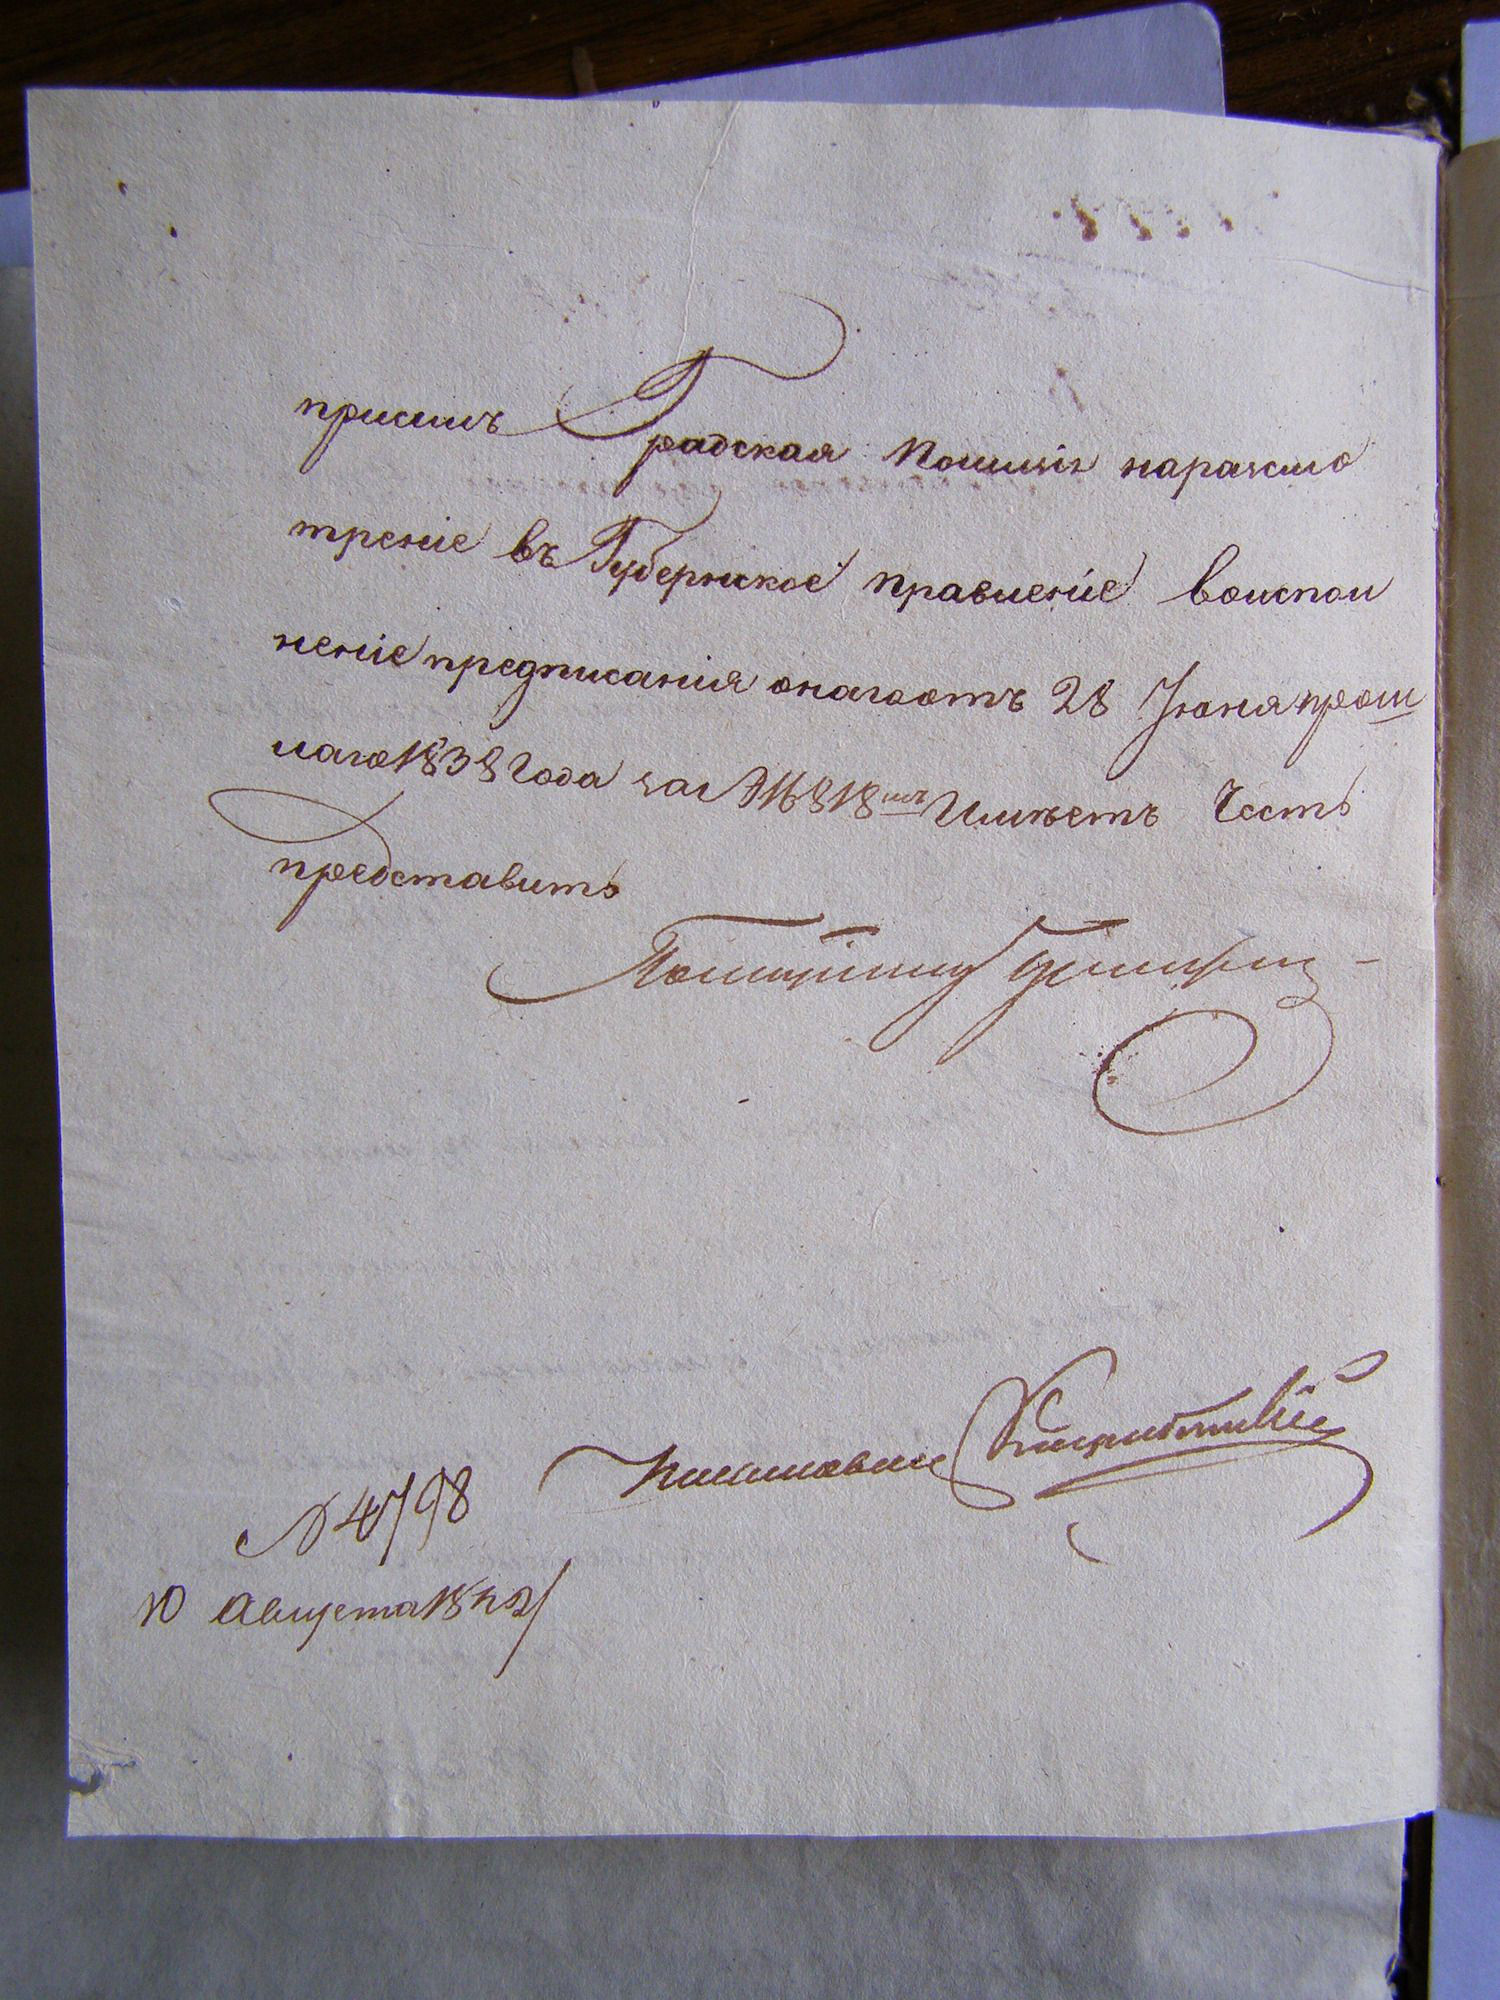 присемъ Градская Полиція наразсмо
трение въ Губернское правление воиспол
нение предписания онагоотъ 28 Июня прош
лаго 1838 Года за № 16818мъ Имѣетъ Честь
представить
Полицiймейстеръ
Письмоводи
№ 4798
10 Августа 1842